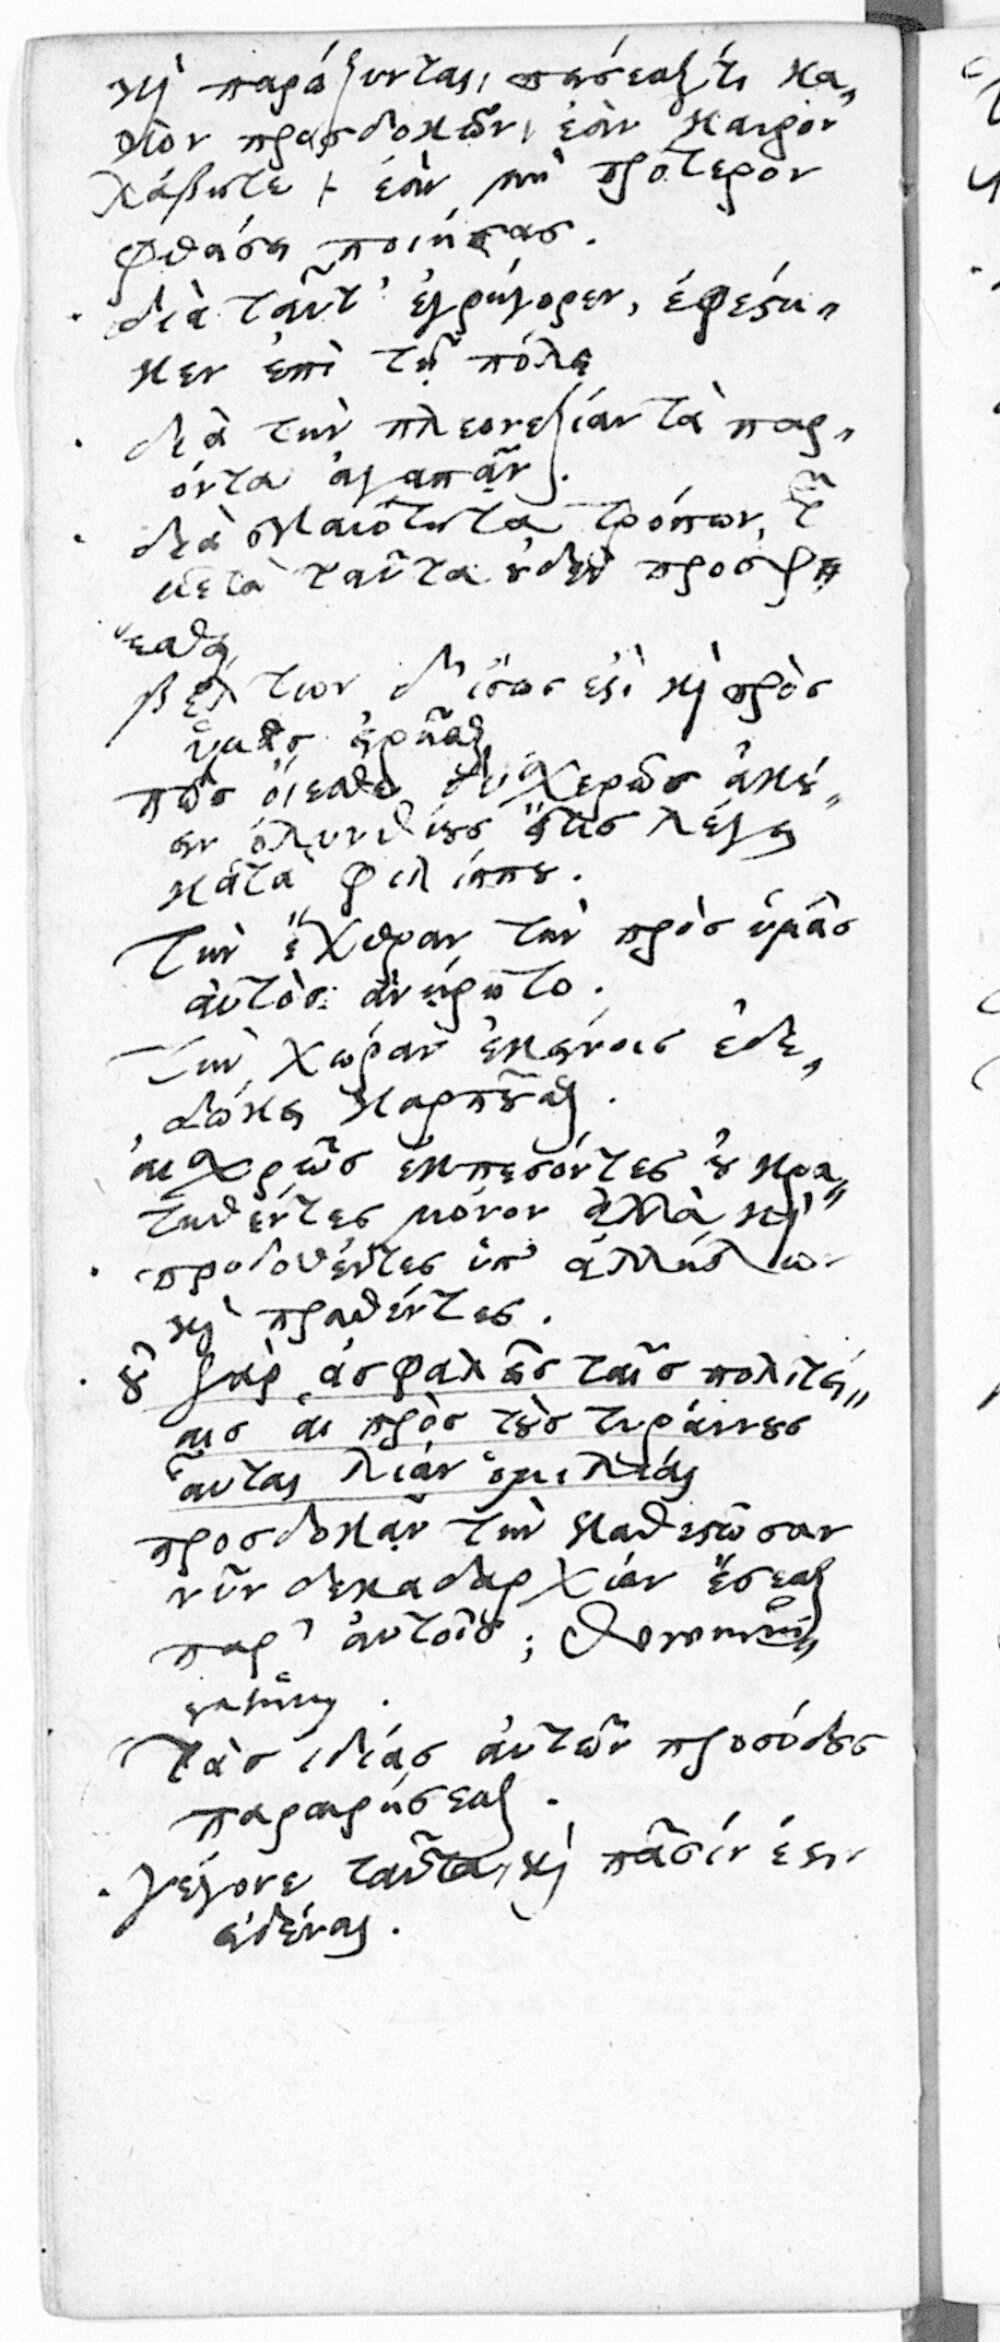 καὶ παρόξυνται, πείσεσθαί τι κα„
κὸν προσδοκῶν, ἐὰν καιρὸν
λάβητε, ἐὰν μὴ πρότερον
φθάσῃ ποιήσας.
· διὰ ταῦτ' ἐγρήγορεν, ἐφέστη„
κεν ἐπὶ τῇ πόλει
· διὰ τὴν πλεονεξίαν τὰ παρ„
όντα ἀγαπᾶν.
· διὰ σκαιότητα τρόπων,
μετὰ ταῦτα οὐδὲν προορεῖ
σθαι
βέλτιον δ' ἴσως ἐστὶ καὶ πρὸς
ὑμᾶς εἰρῆσθαι
πῶς οἴεσθε δυσχερῶς ἀκού„
ειν ὀλυνθίους εἴ τις λέγει
κατὰ φιλίππου.
τὴν ἔχθραν τὴν πρὸς ὑμᾶς
αὐτὸς ἀνῄρητο.
τὴν χώραν ἐκείνοις ἐδε„
δώκει καρποῦσθαι.
αἰσχρῶς ἐκπεσόντες οὐ κρα„
τηθέντες μόνον ἀλλὰ καὶ
· προδοθέντες ὑπ' ἀλλήλων
καὶ πραθέντες.
· οὐ γὰρ ἀσφαλεῖς ταῖς πολιτεί„
αις αἱ πρὸς τοὺς τυράννους
αὗται λίαν ὁμιλίαι
προσδοκᾶν τὴν καθεστῶσαν
νῦν δεκαδαρχίαν ἔσεσθαι
παρ' αὐτοῖς;
τὰς ἰδίας αὐτῶν προσόδους
παραιρήσεσθαι.
· γέγονε ταῦτα, καὶ πᾶσιν ἔστιν
εἰδέναι.